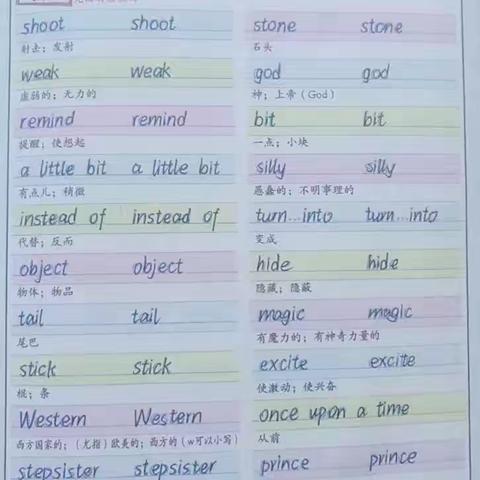 shoot shoot
射击；发射
weak weak
虚弱的；无力的
remind remind
提醒；使想起
a little bit a little bit
有点儿；稍微
instead of instead of
代替；反而
object object
物体；物品
tail tail
尾巴
stick stick
棍；条
Western Western
西方国家的；（尤指）欧美的；西方的（w可以小写）
stepsister stepsister
stone stone
石头
god god
神；上帝（God）
bit bit
一点；小块
silly silly
愚蠢的；不明事理的
turn...into turn...into
变成
hide hide
隐藏；隐蔽
magic magic
有魔力的；有神奇力量的
excite excite
使激动；使兴奋
once upon a time
从前
prince prince